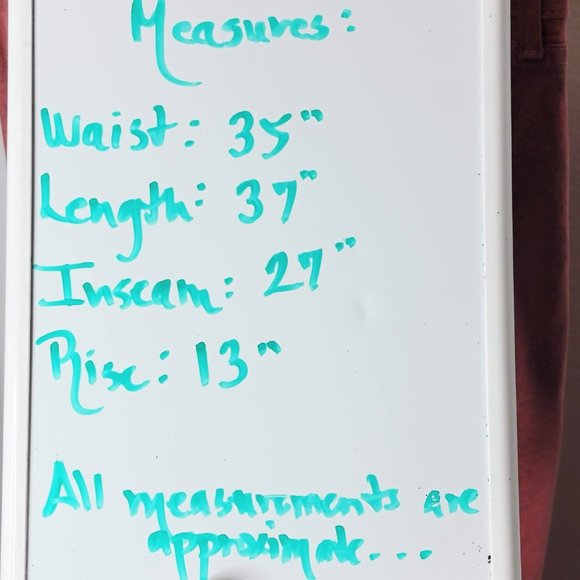 Measures:
Waist: 35"
Length: 37"
Inseam: 27"
Rise: 13"
All measurements are
approximate...